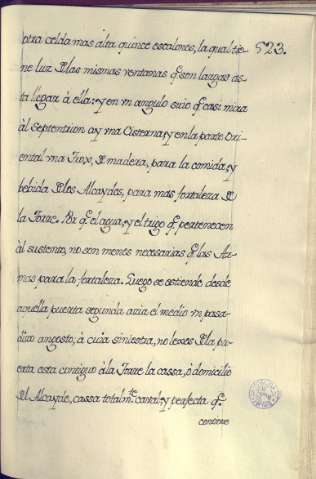 otra celda mas alta quince escalones, la qual tie 523.
ne luz de las mismas ventanas q son largas as
ta llegar à ella: y en un angulo suio q casi mira
àl Septentrion ay vna Cisterna; y en la parte Ori
ental vna Trox, de madera, para la comida, y
bebida de los Alcaydes, para mas fortaleza de
la Torre. Por q el agua, y el trigo q pertenecen
àl sustento, no son menos necesarias q las Ar
mas para la fortaleza. Luego se estiende desde
aquella puerta segunda àzia el medio un pasa
diso angosto, à cuia siniestra, no lexos de la pu
erta esta contiguo à la Torre la cassa, ò domicilio
del Alcayde, cassa totalmte. caval: y perfecta q.
contiene